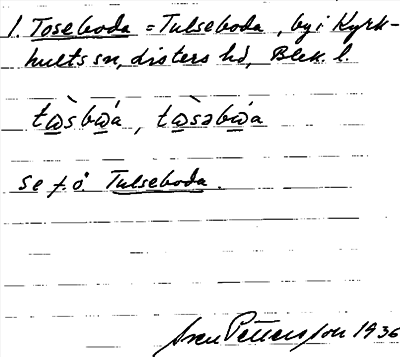 1. Toseboda = Tulseboda, by i Kyrk-
hults sn, Listers hd, Blek. l.
tὼsbώ̣a, tὼsəbώa
se f.ö. Tulseboda.
Sven Pettersson 1936